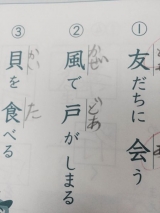 ① 友だちに会う
かぜ どあ
② 風で戸がしまる
かい た
③ 貝を食べる